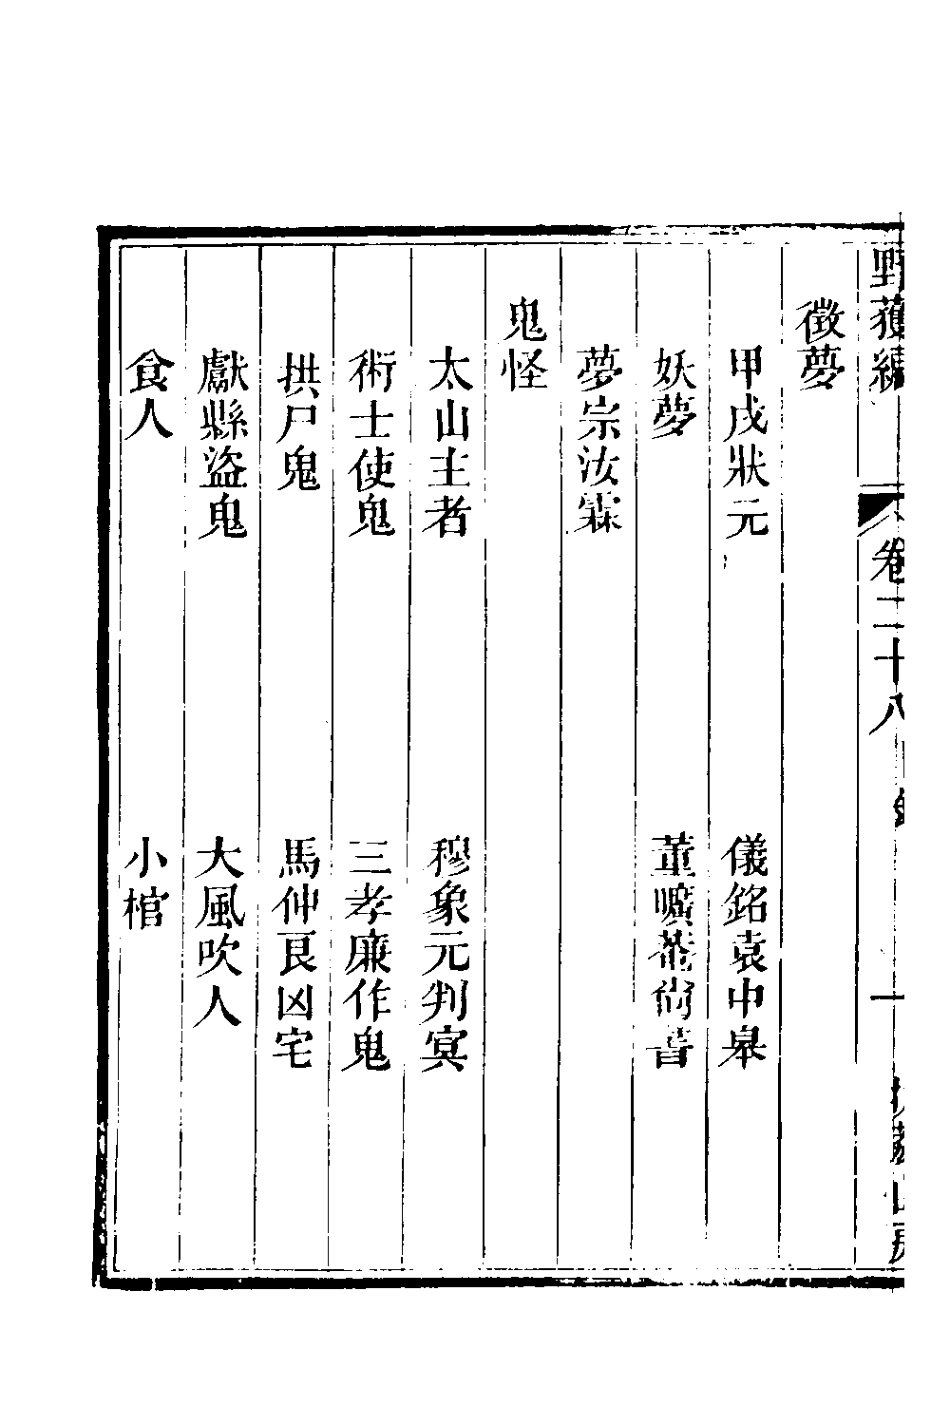 野獲編 卷二十八 目錄 一 扶荔山房
徵夢
甲戌狀元 儀銘袁中皋
妖夢 董曠菴尚書
夢宗汝霖
鬼怪
太山主者 穆象元判冥
術士使鬼 三孝廉作鬼
拱尸鬼 馬仲良凶宅
獻縣盜鬼 大風吹人
食人 小棺